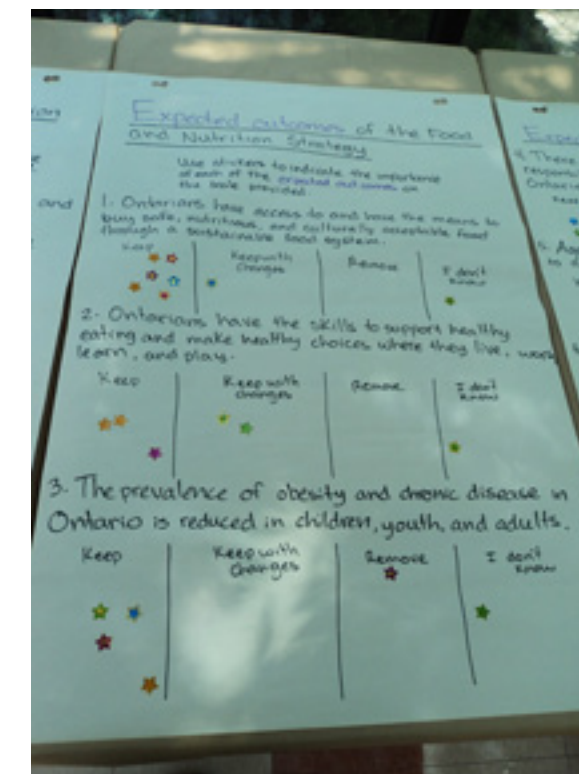 Expected outcomes of the Food
and Nutrition Strategy
Use stickers to indicate the importance
of each of the expected outcomes on
the scale provided.
1. Ontarians have access to and have the means to
buy safe, nutritious, and culturally acceptable food
through a sustainable food system.
Keep
Keep with
changes
Remove
I don't
know
2. Ontarians have the skills to support healthy
eating and make healthy choices where they live, work
learn, and play.
Keep
Keep with
changes
Remove
I don't
know
3. The prevalence of obesity and chronic disease in
Ontario is reduced in children, youth, and adults.
Keep
Keep with
changes
Remove
I don't
know
and
4. These